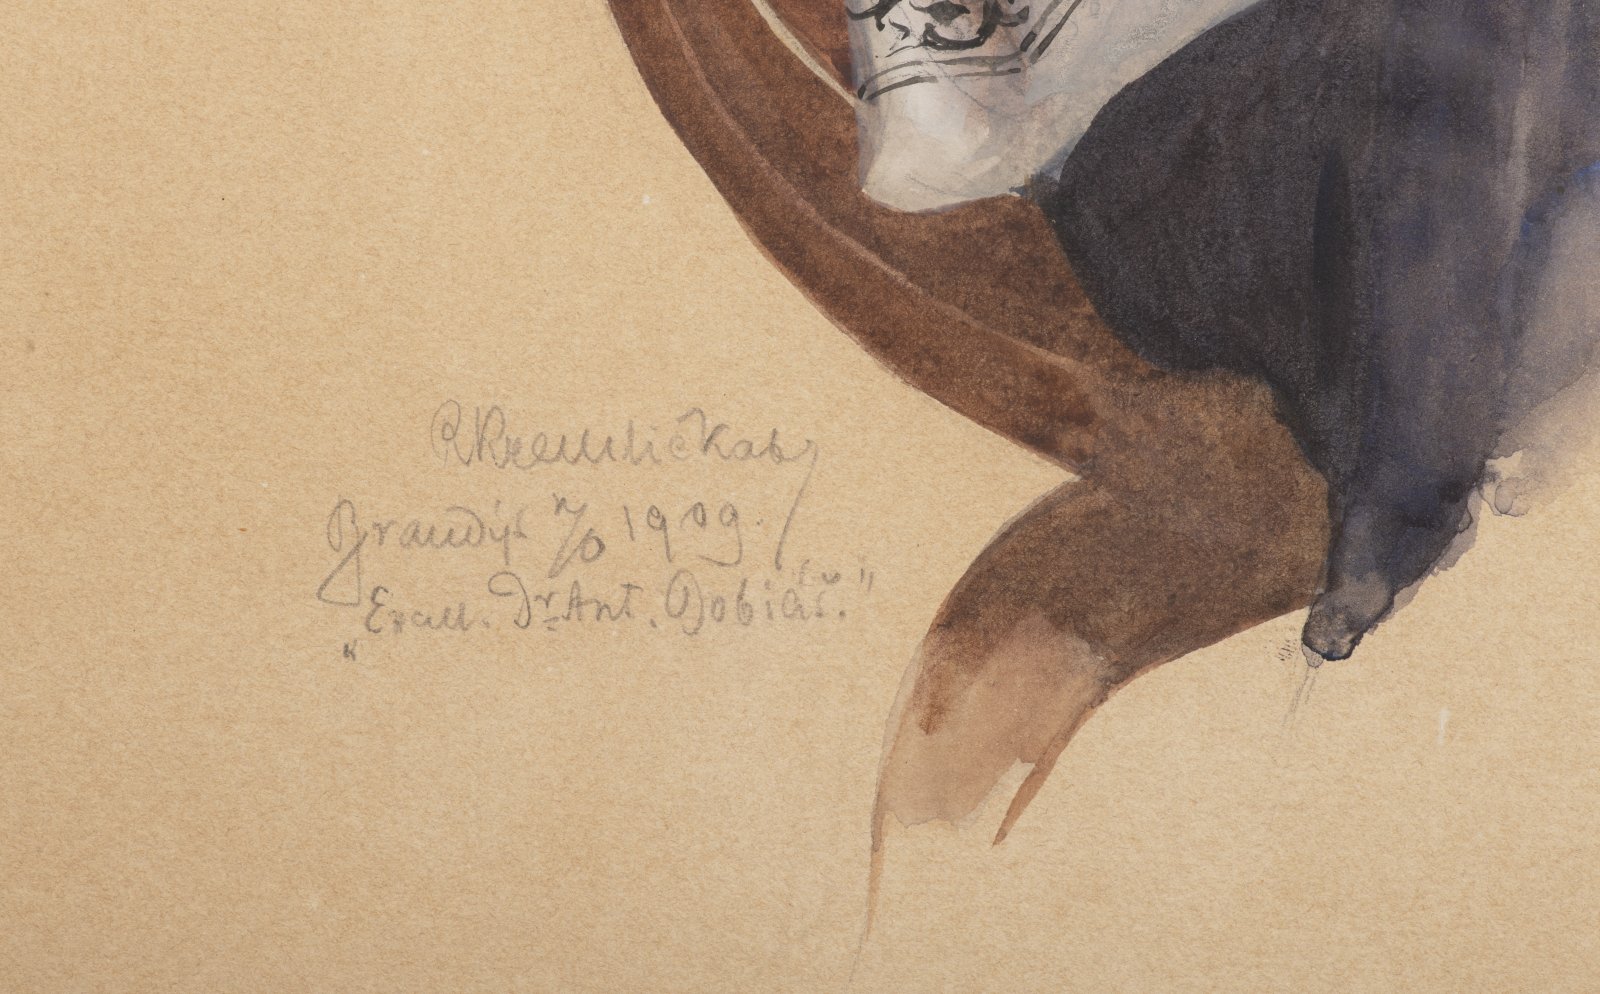 RKremličkab,
Brandýs n/O 1909.
„Excell. Dr Ant. Dobiáš."